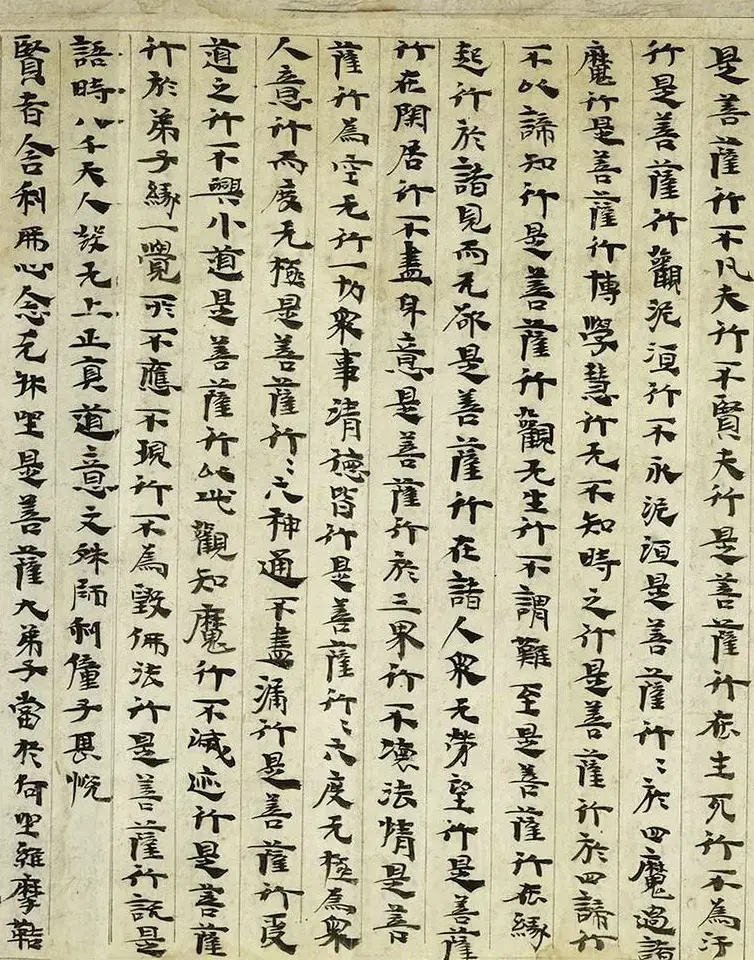 是菩薩行不凡夫行不賢夫行是菩薩行在生死行不為汙
行是菩薩行觀泥洹行不永泥洹是菩薩行〻於四魔過諸
魔行是菩薩行博學慧行无不知時之行是菩薩行於四諦行
不以諦知行是菩薩行觀无生行不謂難至是菩薩行在緣
起行於諸見而无欲是菩薩行在諸人衆无勞望行是菩薩
行在閑居行不盡身意是菩薩行於三界行不壞法情是菩
薩行為空无行一切衆事清德皆行是菩薩行〻六度无極為衆
人意行而度无極是菩薩行〻六神通不盡漏行是菩薩行受
道之行不興小道是菩薩行以此觀知魔行不滅迹行是菩薩
行於弟子緣一覺所不應不現行不為毀佛法行是菩薩行說是
語時八千天人發无上正真道意文殊師利僮子甚悅
賢者舍利弗心念无牀坐是菩薩大弟子當於何坐維摩詰